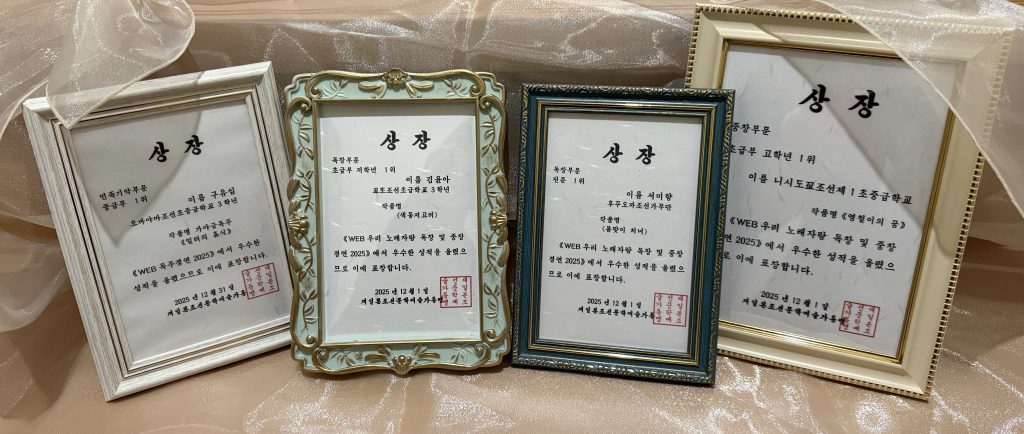 상 장
민족기악부문
중급부 1위
이름 구유심
오까야마조선초중급학교 3학년
작품명 가야금독주
《일터의 휴식》
《WEB 독주경연 2025》에서 우수한
성적을 올렸으므로 이에 표창합니다.
2025 년 12 월 31 일
재일본조선문학예술가동
상 장
독창부문
초급부 저학년 1위
이름 김윤아
교또조선초급학교 3학년
작품명
《색동저고리》
《WEB 우리 노래자랑 독창 및 중창
경연 2025》에서 우수한 성적을 올렸으
므로 이에 표창합니다.
2025 년 12 월 1 일
재일본조선문학예술가동
상 장
독창부문
전문 1위
이름 서미향
후꾸오까조선가무단
작품명
《봄맞이 처녀》
《WEB 우리 노래자랑 독창 및 중창
경연 2025》에서 우수한 성적을 올렸으
므로 이에 표창합니다.
2025 년 12 월 1 일
재일본조선문학예술가동
상 장
중창부문
초급부 고학년 1위
이름 니시도꾜조선제1초중급학교
작품명《명철이의 꿈》
《WEB 우리 노래자랑 독창 및 중창
경연 2025》에서 우수한 성적을 올렸으
므로 이에 표창합니다.
2025 년 12 월 1 일
재일본조선문학예술가동